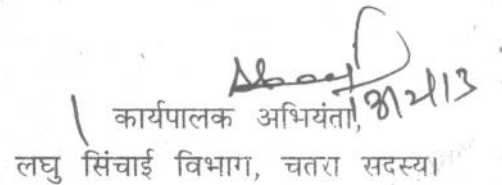 कार्यपालक अभियंता,
लघु सिंचाई विभाग, चतरा सदस्य।